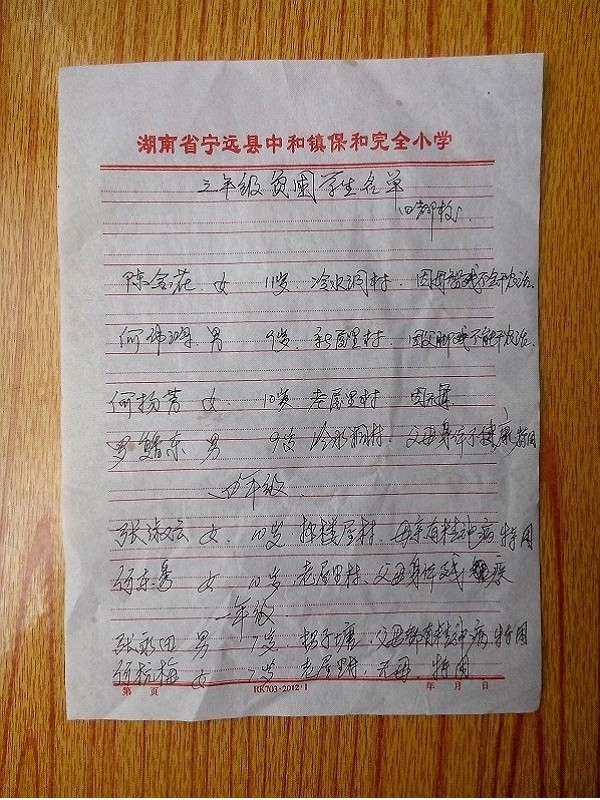 湖南省宁远县中和镇保和完全小学
三年级贫困学生名单
陈金花 女 11岁 冷水洞村 因母智残不会干农活.
何 男 9岁 新屋里村 因父脚残不能干农活.
何杨青 女 10岁 老屋里村 因无母
罗 东 男 9岁 冷水 村 父母身体不健康 特困
四年级
张 女 10岁 楼屋村 母亲有精神病 特困
何东 女 10岁 老屋里村 父母身体残疾
一年级
张 田 男 7岁 父母都有精神病 特困
何杭梅 女 7岁 老屋里村 无母 特困
第 页 RK703·2012·1 年 月 日